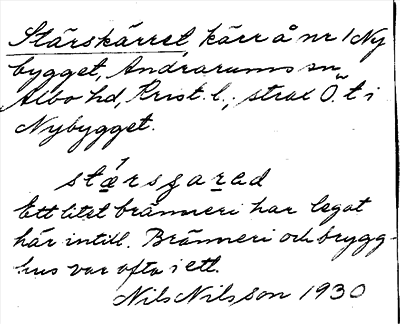 Stärskärret, kärr å nr 1 Ny
bygget, Andrarums sn
Albo hd, Krist. l., strax Ö. t i
Nybygget.
Ett litet bränneri har legat
här intill. Bränneri och brygg-
hus var ofta i ett.
Nils Nilsson 1930